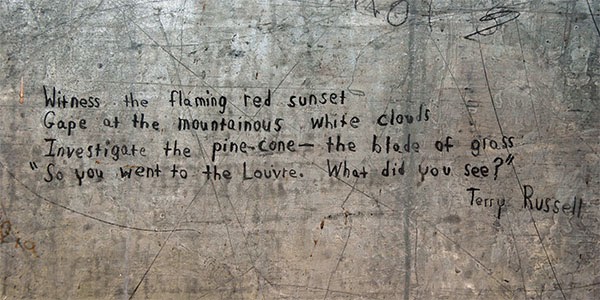 Witness the flaming red sunset
Gape at the mountainous white clouds
Investigate the pine-cone — the blade of grass
"So you went to the Louvre. What did you see?"
Terry Russell